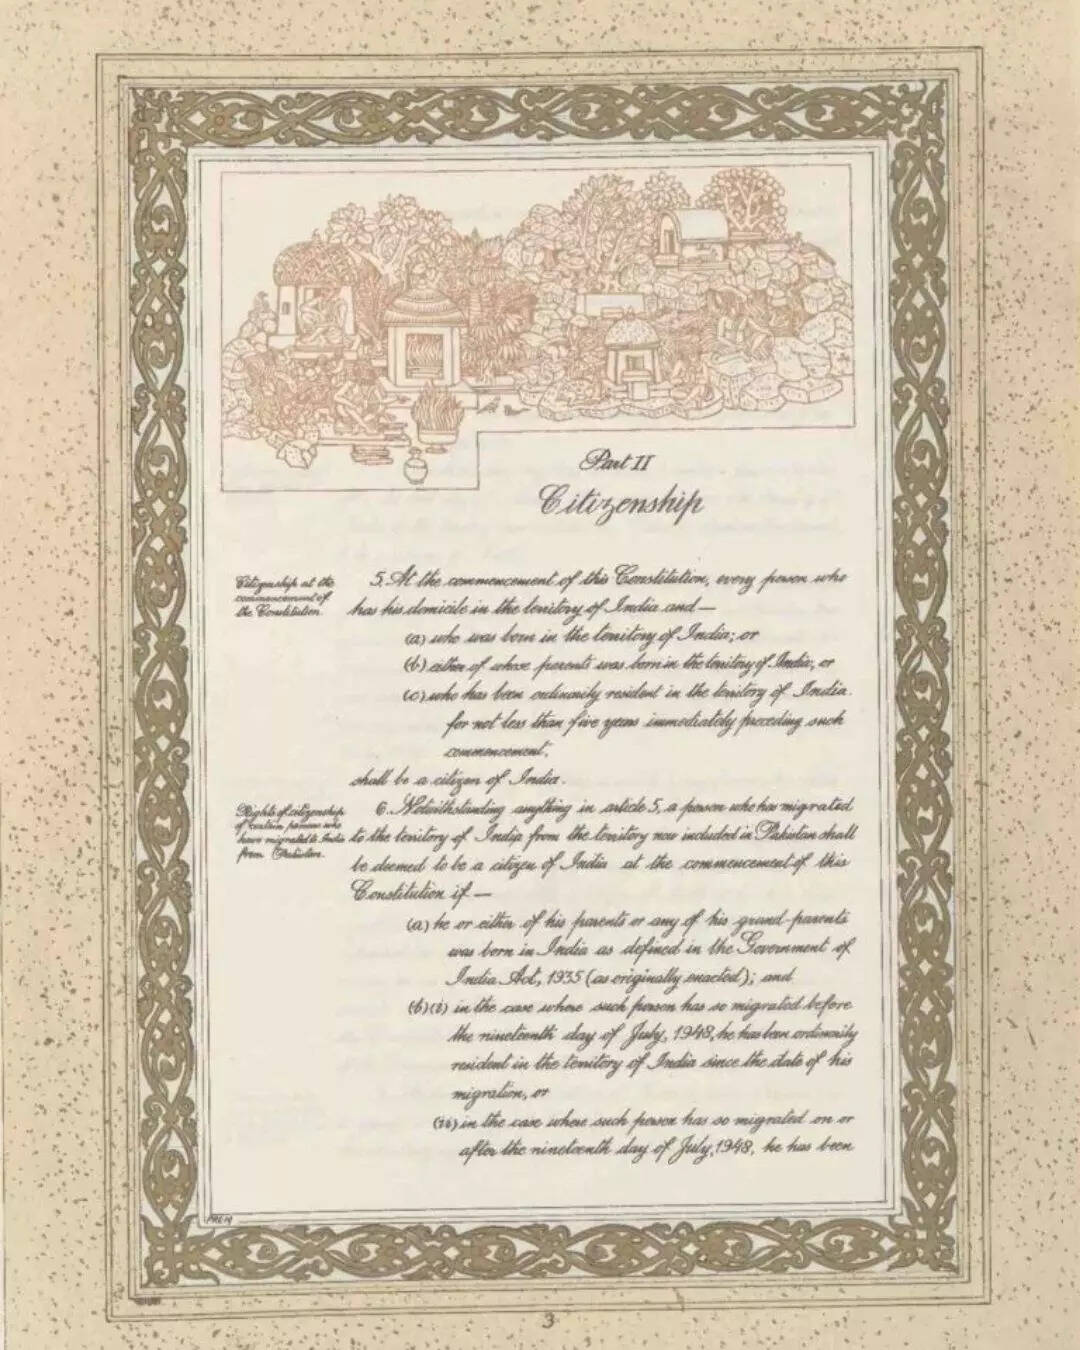 Part II
Citizenship
Citizenship at the
commencement of
the Constitution.
5. At the commencement of this Constitution, every person who
has his domicile in the territory of India and —
(a) who was born in the territory of India; or
(b) either of whose parents was born in the territory of India; or
(c) who has been ordinarily resident in the territory of India
for not less than five years immediately preceding such
commencement,
shall be a citizen of India.
Rights of citizenship
of certain persons who
have migrated to India
from Pakistan.
6. Notwithstanding anything in article 5, a person who has migrated
to the territory of India from the territory now included in Pakistan shall
be deemed to be a citizen of India at the commencement of this
Constitution if —
(a) he or either of his parents or any of his grand-parents
was born in India as defined in the Government of
India Act, 1935 (as originally enacted); and
(b)(i) in the case where such person has so migrated before
the nineteenth day of July, 1948, he has been ordinarily
resident in the territory of India since the date of his
migration, or
(ii) in the case where such person has so migrated on or
after the nineteenth day of July, 1948, he has been
3